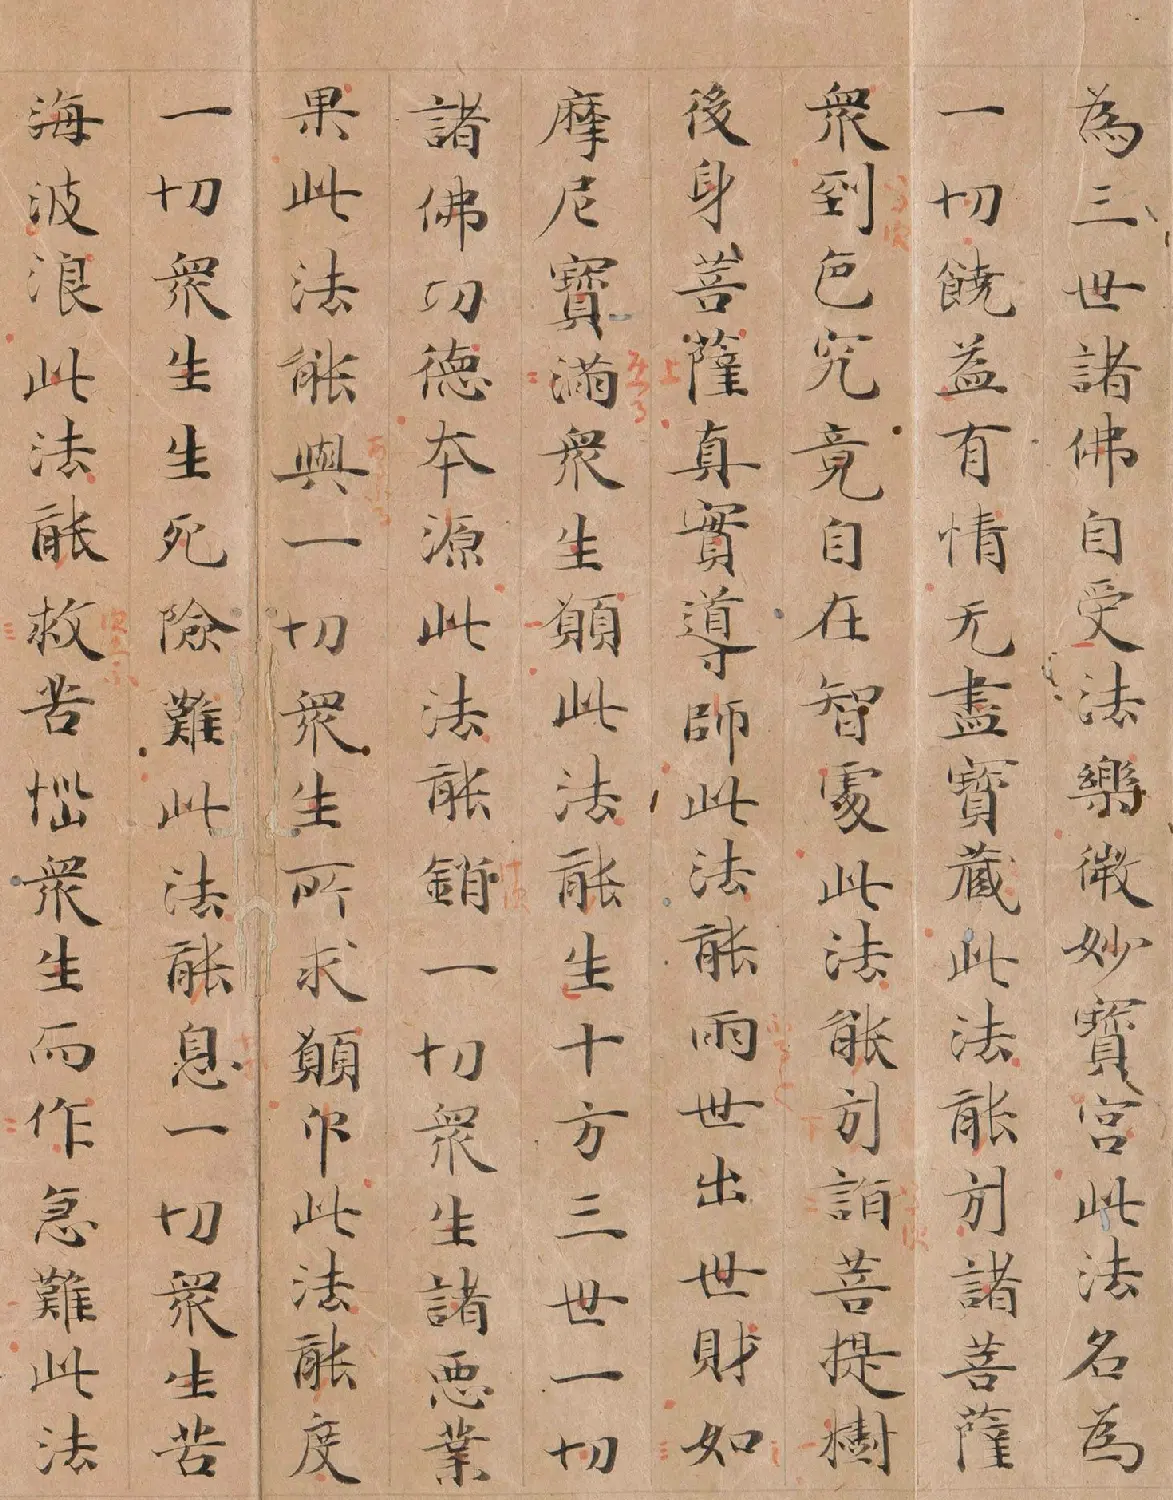 為三世諸佛自受法樂微妙寶宮此法名為
一切饒益有情无盡寶藏此法能引諸菩薩
衆到色究竟自在智處此法能引詣菩提樹
後身菩薩真實導師此法能雨世出世財如
摩尼寶滿衆生願此法能生十方三世一切
諸佛功德本源此法能銷一切衆生諸惡業
果此法能與一切衆生所求願印此法能度
一切衆生生死險難此法能息一切衆生苦
海波浪此法能救苦惱衆生而作急難此法